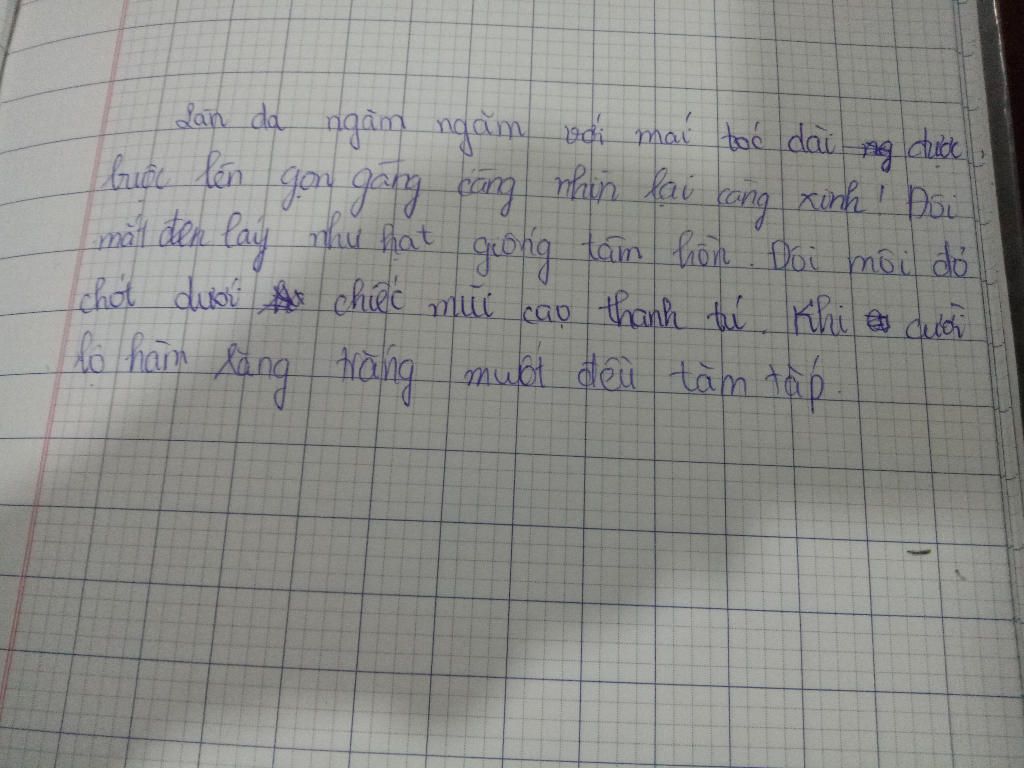 Làn da ngăm ngăm với mái tóc dài được
buộc lên gọn gàng càng nhìn lại càng xinh! Đôi
mắt đen láy như hạt giống tâm hồn. Đôi môi đỏ
chót dưới chiếc mũi cao thanh tú. Khi cười
lộ hàm răng trắng muốt đều tăm tắp.